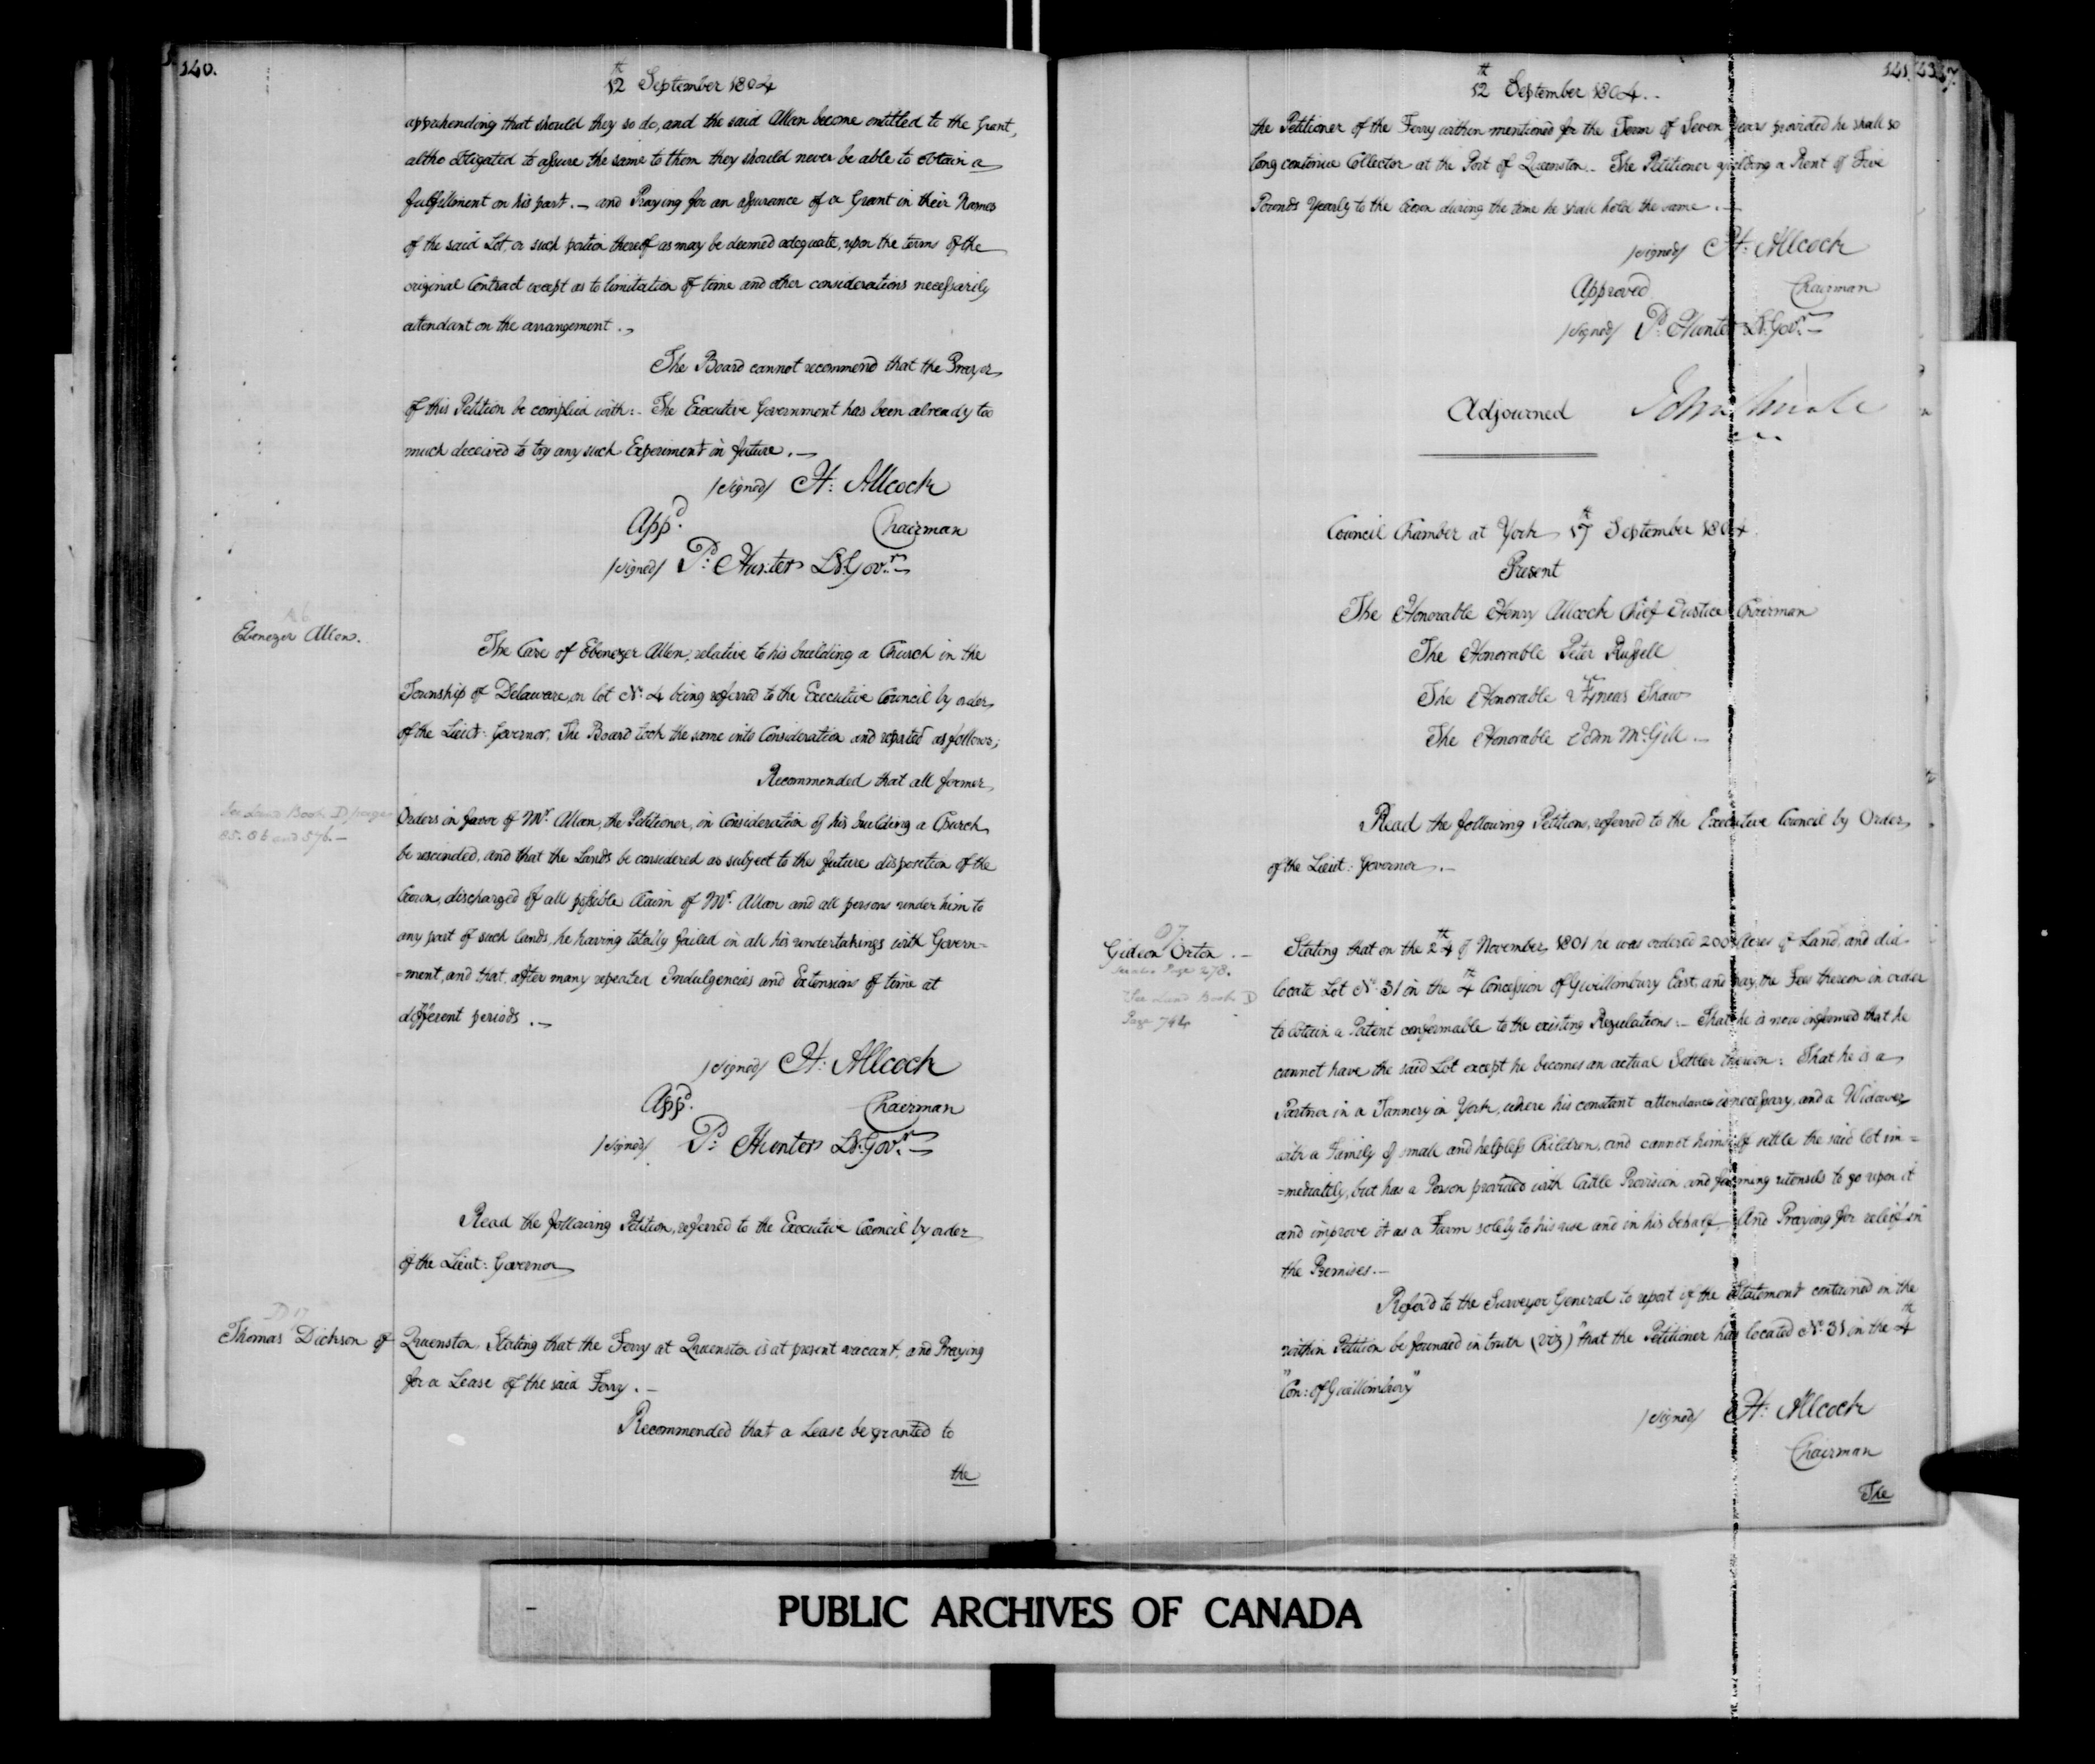 140.
12th September 1804
apprehending that should they so do, and the said Allan become entitled to the Grant,
altho obligated to assure the same to them they should never be able to obtain a
fulfillment on his part. — and Praying for an assurance of a Grant in their Names
of the said Lot, or such portion thereof as may be deemed adequate, upon the terms of the
original Contract except as to limitation of time and other considerations necessarily
attendant on the arrangement. —
The Board cannot recommend that the Prayer
of this Petition be complied with:- The Executive Government has been already too
much deceived to try any such Experiment in future. —
/signed/ H: Allcock
Appd. Chairman
/signed/ P: Hunter Lt. Govr. —
Ebenezer Allen.
The Case of Ebenezer Allen, relative to his building a Church in the
Township of Delaware on lot No. 4 being referred to the Executive Council by order
of the Lieut: Governor, The Board took the same into Consideration and reported as follows;
Recommended that all former
See Land Book D page
85. 86 and 576. —
Orders in favor of Mr. Allan, the Petitioner, in Consideration of his building a Church
be rescinded, and that the Lands be considered as subject to the future disposition of the
Crown, discharged of all possible Claim of Mr. Allan and all persons under him to
any part of such lands, he having totally failed in all his undertakings with Govern=
=ment, and that, after many repeated Indulgencies and Extensions of time at
different periods. —
/signed/ H: Allcock
Appd. Chairman
/signed/ P: Hunter Lt. Govr. —
Read the following Petition, referred to the Executive Council by order
of the Lieut: Governor
D 17
Thomas Dickson of Queenston, Stating that the Ferry at Queenston is at present vacant, and Praying
for a Lease of the said Ferry. —
Recommended that a Lease be granted to
the
141
12th September 1804. —
the Petitioner of the Ferry within mentioned for the Term of Seven years provided he shall so
long continue Collector at the Port of Queenston. — The Petitioner yielding a Rent of Five
Pounds Yearly to the Crown during the time he shall hold the same. —
/signed/ H: Allcock
Approved Chairman
/signed/ P: Hunter Lt. Govr. —
Adjourned John
Council Chamber at York 17th September 1804.
Present
The Honorable Henry Allcock Chief Justice Chairman
The Honorable Peter Russell
The Honorable Æneas Shaw
The Honorable John McGill. —
Read the following Petitions, referred to the Executive Council by Order
of the Lieut: Governor. —
O7
Gideon Orton. —
Page 278.
See Land Book D
Page 744
Stating that on the 24th of November 1801 he was ordered 200 Acres of Land, and did
locate Lot No. 31 in the 4th Concession of Gwillimbury East, and pay the Fees thereon in order
to obtain a Patent conformable to the existing Regulations:— That he is now informed that he
cannot have the said Lot except he becomes an actual Settler thereon: That he is a
Partner in a Tannery in York, where his constant attendance is necessary, and a Widower
with a Family of small and helpless Children, and cannot himself settle the said lot im=
=mediately, but has a Person provided with Cattle Provision and farming utensils to go upon it
and improve it as a Farm solely to his use and in his behalf — And Praying for relief in
the Premises. —
Refer'd to the Surveyor General to report if the Statement contained in the
within Petition be founded in truth (viz) "that the Petitioner has located No. 31 in the 4th
"Con: of Gwillimbury"
/signed/ H: Allcock
Chairman
The
PUBLIC ARCHIVES OF CANADA